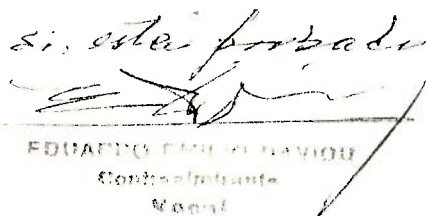 si, está forzado
EDUARDO EMILIO DAVIOU
Contraalmirante
Vocal